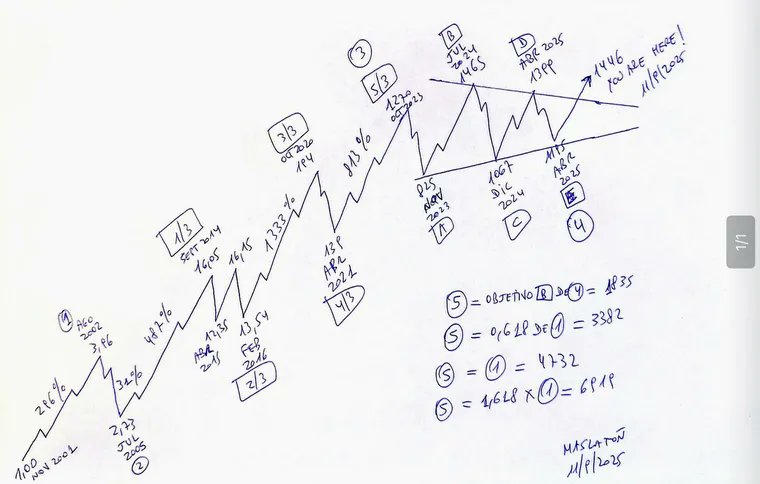 1,00
NOV 2001
296%
1
AGO
2002
3,96
31%
2,73
JUL
2005
2
487%
1/3
SEPT 2014
16,05
12,35
ABR
2015
16,15
13,54
FEB
2016
2/3
1333%
3/3
OCT 2020
194
139
ABR
2021
4/3
813%
3
5/3
1270
OCT 2023
925
NOV
2023
A
B
JUL
2024
1465
1067
DIC
2024
C
D
ABR 2025
1399
1195
ABR
2025
E
4
1446
YOU ARE HERE!
11/9/2025
5 = OBJETIVO B DE 4 = 1835
5 = 0,618 DE 1 = 3382
5 = 1 = 4732
5 = 1,618 x 1 = 6919
MASLATON
11/9/2025
1/1